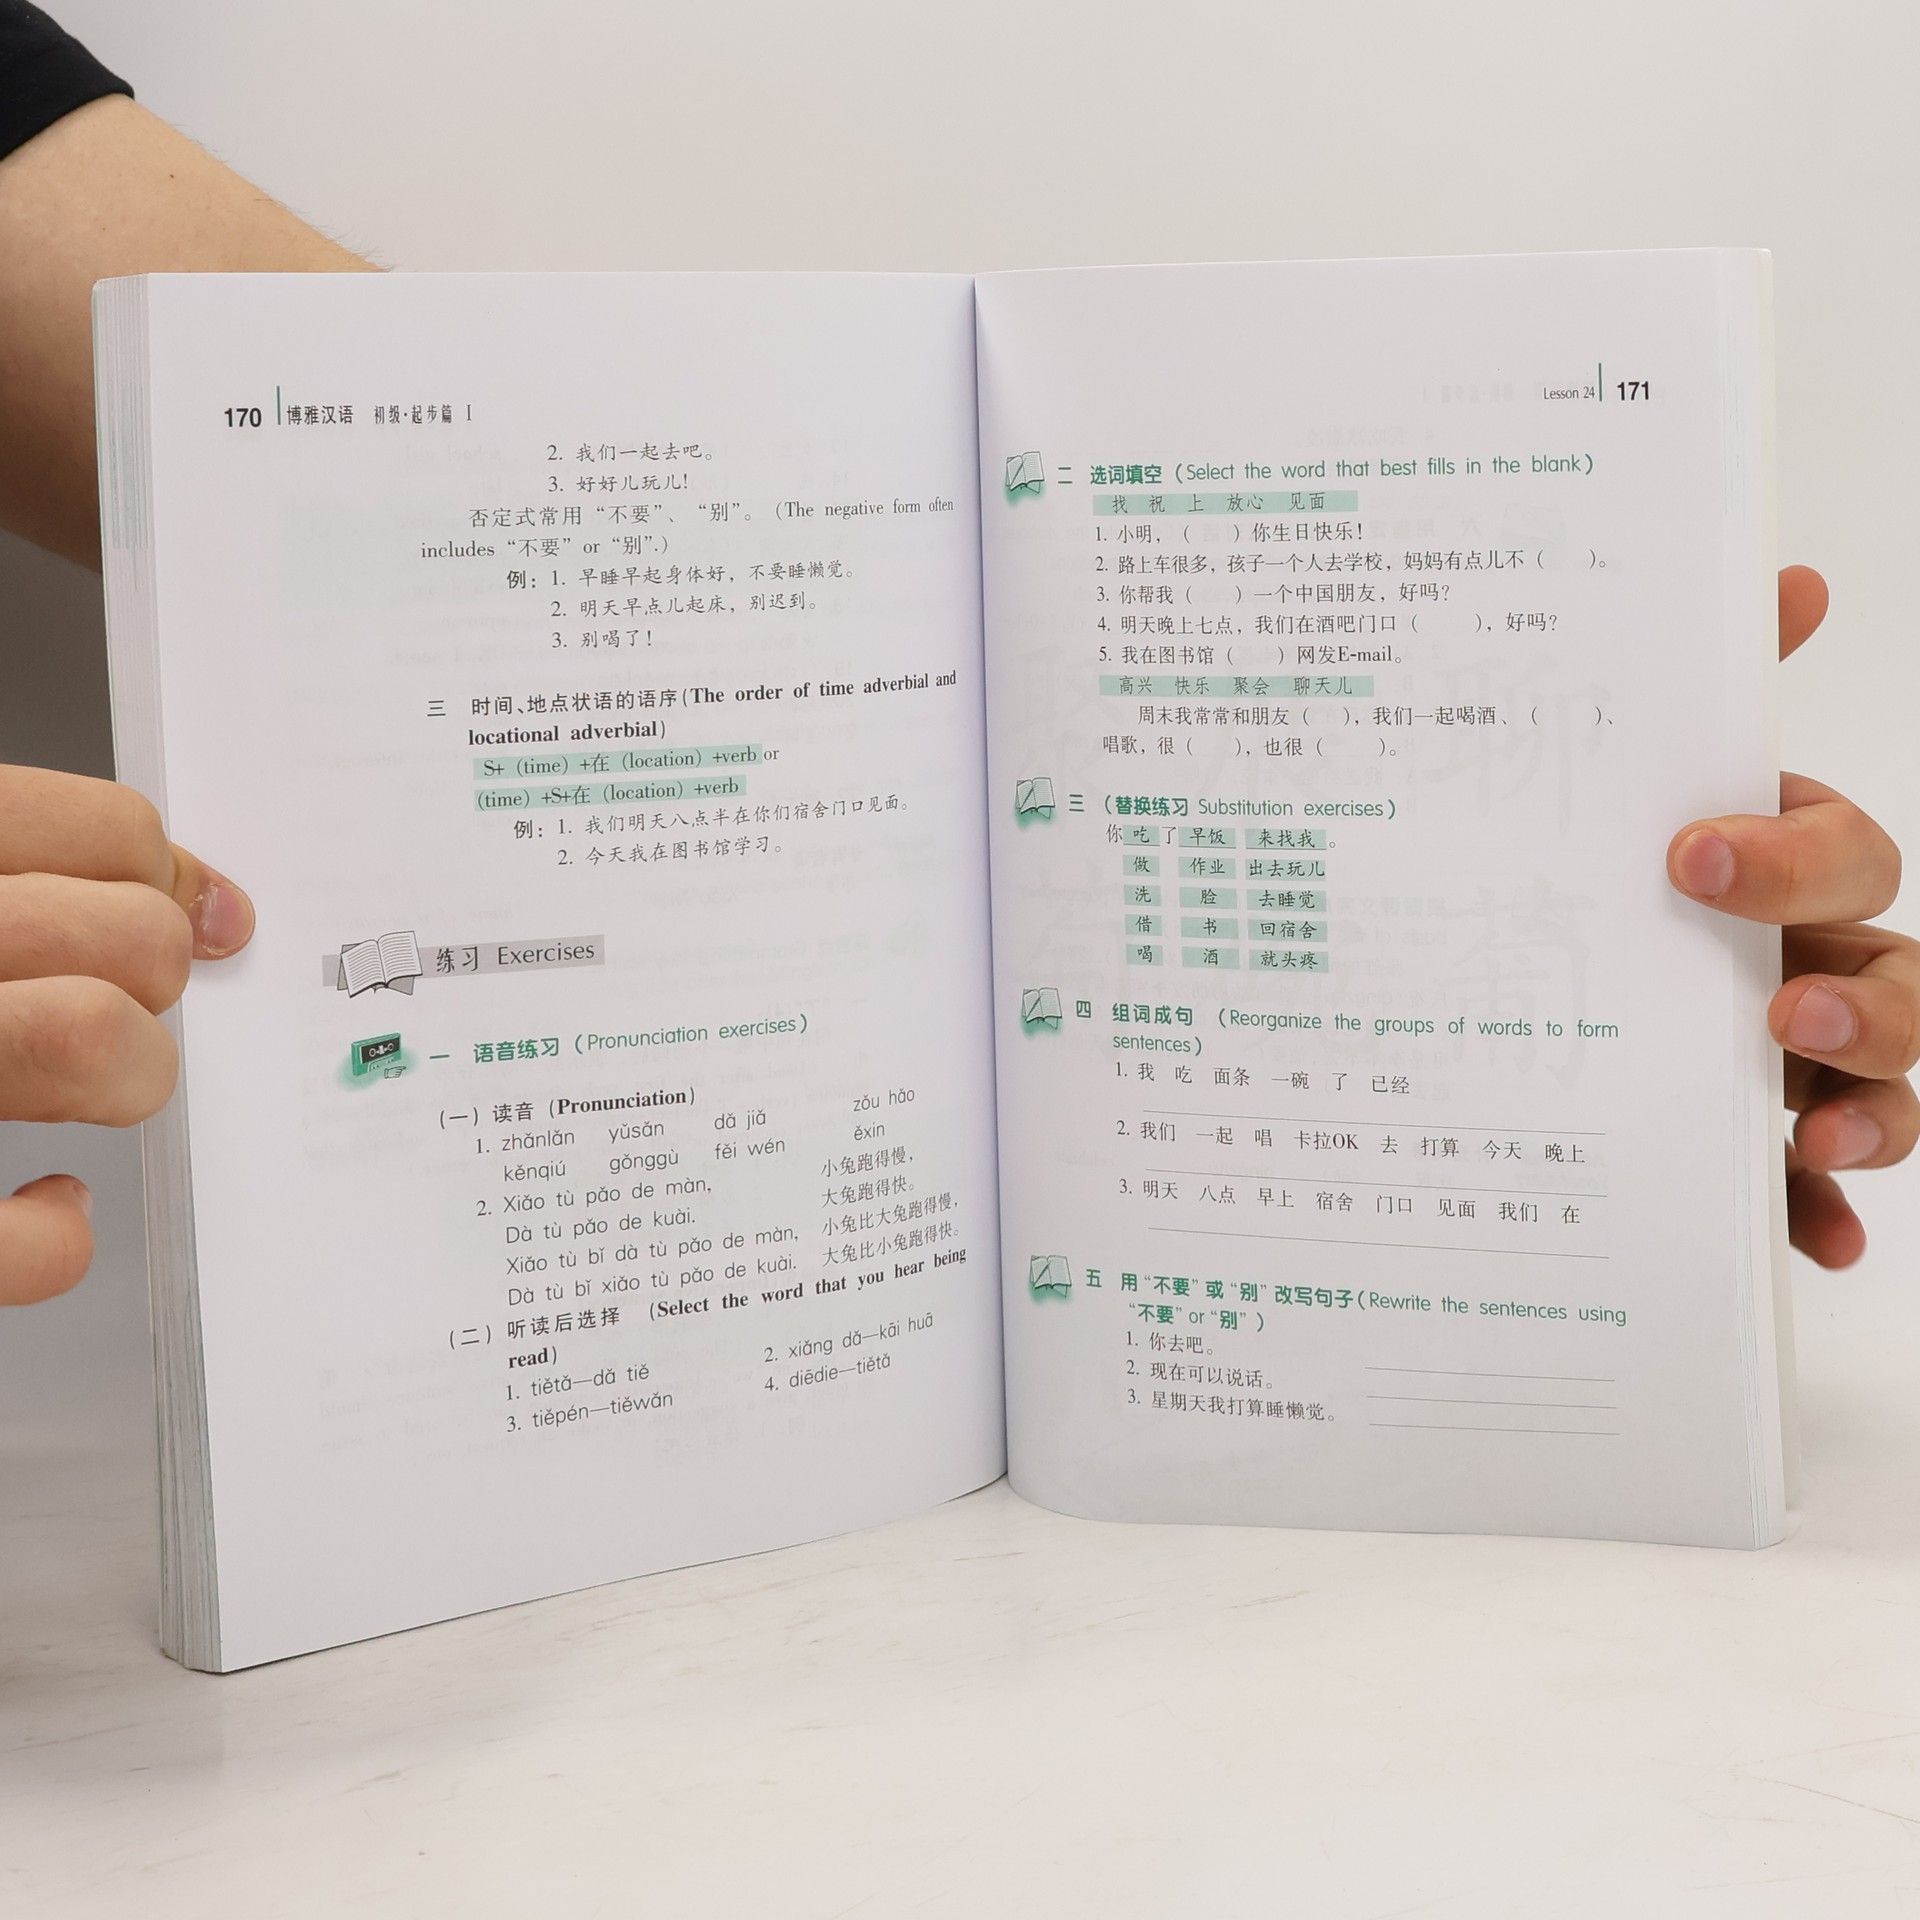 170 博雅汉语 初级·起步篇 Ⅰ
2. 我们一起去吧。
3. 好好儿玩儿!
否定式常用“不要”、“别”。(The negative form often
includes “不要” or “别”.)
例: 1. 早睡早起身体好, 不要睡懒觉。
2. 明天早点儿起床, 别迟到。
3. 别喝了!
三 时间、地点状语的语序(The order of time adverbial and
locational adverbial)
S+(time)+在(location)+verb or
(time)+S+在(location)+verb
例: 1. 我们明天八点半在你们宿舍门口见面。
2. 今天我在图书馆学习。
练习 Exercises
一 语音练习(Pronunciation exercises)
(一)读音(Pronunciation)
1. zhǎnlǎn yǔsǎn dǎ jiǎ zǒu hǎo
kěnqiú gǒnggù fěi wén ěxin
2. Xiǎo tù pǎo de màn, 小兔跑得慢,
Dà tù pǎo de kuài. 大兔跑得快。
Xiǎo tù bǐ dà tù pǎo de màn, 小兔比大兔跑得慢,
Dà tù bǐ xiǎo tù pǎo de kuài. 大兔比小兔跑得快。
(二)听读后选择 (Select the word that you hear being
read)
1. tiětǎ—dǎ tiě 2. xiǎng dǎ—kāi huā
3. tiěpén—tiěwǎn 4. diēdie—tiětǎ
Lesson 24 171
二 选词填空(Select the word that best fills in the blank)
找 祝 上 放心 见面
1. 小明,( )你生日快乐!
2. 路上车很多, 孩子一个人去学校, 妈妈有点儿不( )。
3. 你帮我( )一个中国朋友, 好吗?
4. 明天晚上七点, 我们在酒吧门口( ), 好吗?
5. 我在图书馆( )网发E-mail。
高兴 快乐 聚会 聊天儿
周末我常常和朋友( ), 我们一起喝酒、( )、
唱歌, 很( ), 也很( )。
三 (替换练习 Substitution exercises)
你 吃 了 早饭 来找我。
做 作业 出去玩儿
洗 脸 去睡觉
借 书 回宿舍
喝 酒 就头疼
四 组词成句 (Reorganize the groups of words to form
sentences)
1. 我 吃 面条 一碗 了 已经
2. 我们 一起 唱 卡拉OK 去 打算 今天 晚上
3. 明天 八点 早上 宿舍 门口 见面 我们 在
五 用“不要”或“别”改写句子(Rewrite the sentences using
“不要” or “别”)
1. 你去吧。
2. 现在可以说话。
3. 星期天我打算睡懒觉。